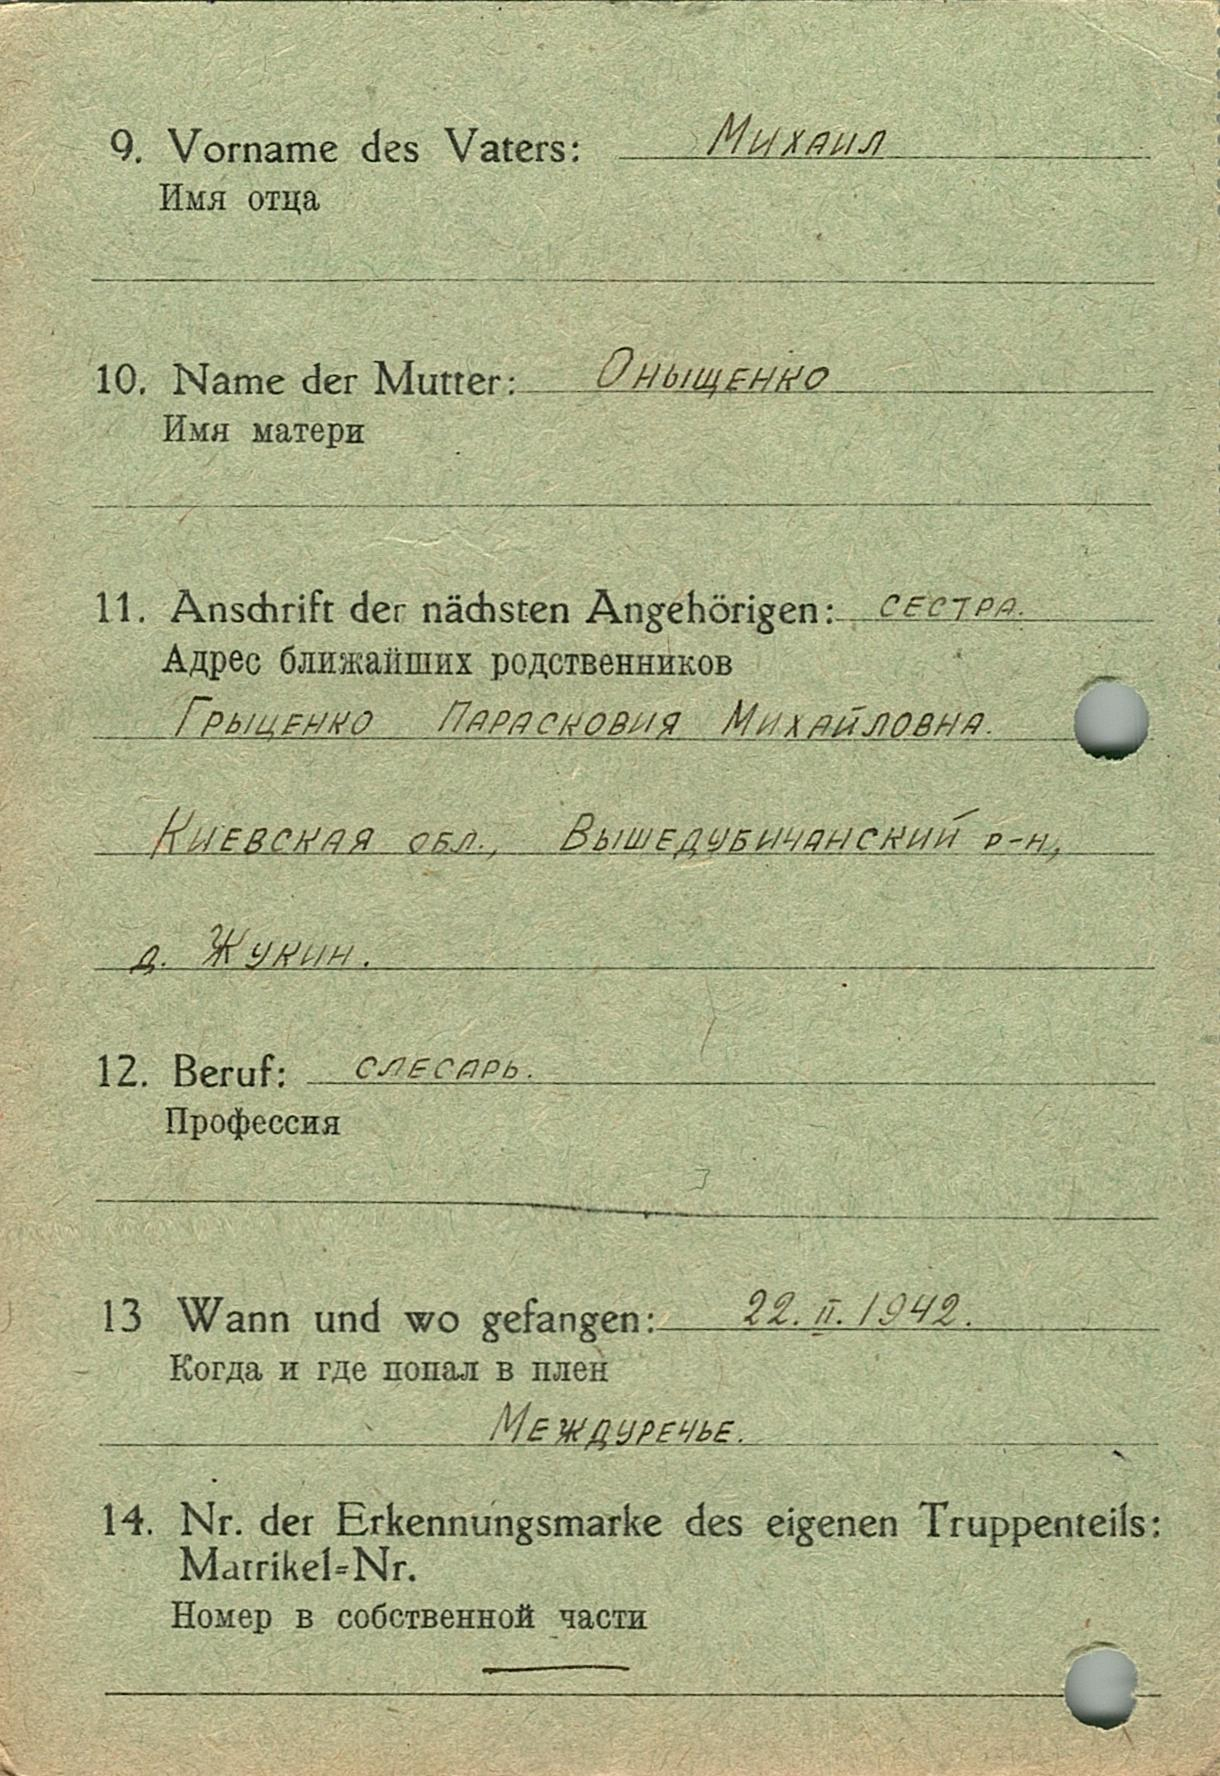 9. Vorname des Vaters: Михаил
Имя отца
10. Name der Mutter: Оныщенко
Имя матери
11. Anschrift der nächsten Angehörigen: сестра.
Адрес ближайших родственников
Грыценко Парасковия Михайловна.
Киевская обл., Вышедубичанский р-н,
д. Жукин.
12. Beruf: слесарь.
Профессия
13 Wann und wo gefangen: 22. II. 1942.
Когда и где попал в плен
Междуречье.
14. Nr. der Erkennungsmarke des eigenen Truppenteils:
Matrikel=Nr.
Номер в собственной части